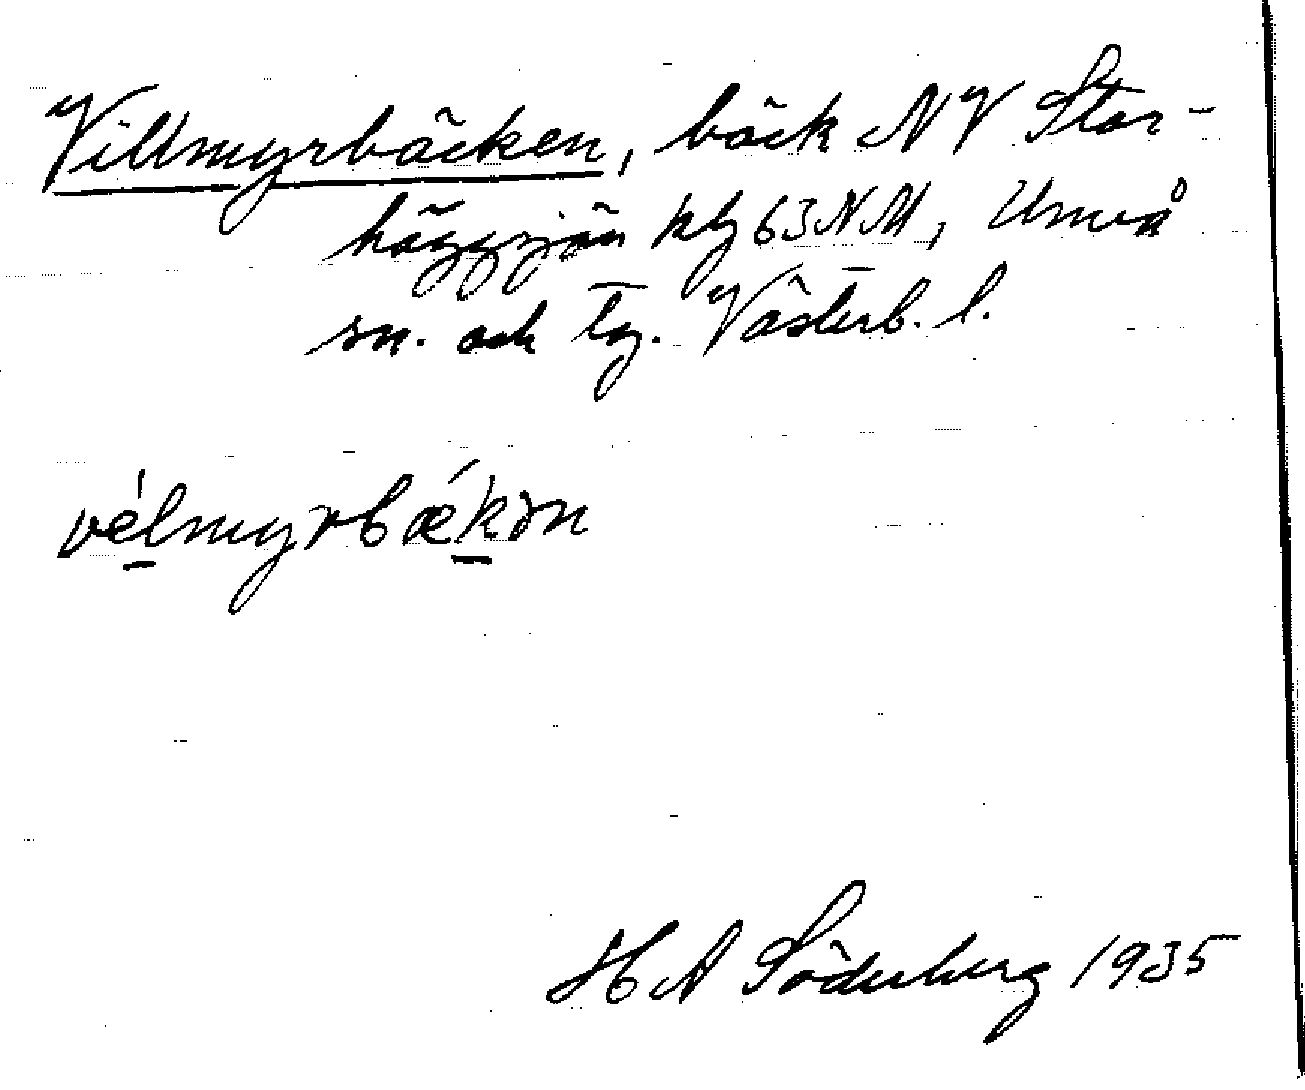 Villmyrbäcken, bäck NV Stor-
häggsjön kbl 63 NM, Umeå
sn. och tg. Västerb. l.
vélmyrbǽkən
H A Söderberg 1935